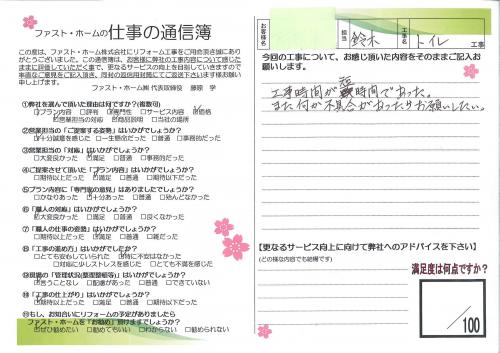 ファスト・ホームの仕事の通信簿
この度は、ファスト・ホーム株式会社にリフォーム工事をご用命頂き誠にあり
がとうございました。この通信簿は、お客様に弊社の工事内容について感じた
ままに評価していただく事で、更なるサービスの向上を目指していきますので
率直なご意見をご記入頂き、同封の返信用封筒にてご返送下さいます様お願い
申し上げます。
ファスト・ホーム㈱ 代表取締役 藤原 学
①弊社を選んで頂いた理由は何ですか?(複数可)
□プラン内容 □評判 □専門性 □サービス内容 □価格
□営業担当者の対応 □商品説明 □当社の場所
②営業担当の「ご提案する姿勢」はいかがでしたか?
□十分誠意を感じた □一生懸命だった □普通 □事務的だった
③営業担当の「対応」はいかがでしょうか?
□大変良かった □満足 □普通 □事務的だった
④ご提案させて頂いた「プラン内容」はいかがでしたか?
□期待以上だった □満足 □普通 □期待以下だった
⑤プラン内容に「専門家の意見」はありましたでしょうか?
□かなりあった □十分あった □普通 □殆んどなかった
⑥「職人の対応」はいかがでしょうか?
□大変良かった □満足 □普通 □良くなかった
⑦「職人の仕事の姿勢」はいかがでしたか?
□期待以上だった □満足 □普通 □雑だった
⑧「工事の進め方」はいかがでしたか?
□とても安心していられた □特に不安はなかった
□対応に少しストレスを感じた □とても不満を感じた
⑨現場の「管理状況(整理整頓等)」はいかがでしたか?
□言うことなし □配慮があった □普通 □できていない
⑩「工事の仕上がり」はいかがでしたか?
□期待以上だった □満足 □普通 □期待以下だった
⑪もし、お知合いにリフォームの予定がありましたら
ファスト・ホームを「お勧め」頂けますでしょうか?
□ぜひ勧めたい □勧めてもいい □わからない □勧められない
お客様名
担当
鈴木
工事名
トイレ
工事
今回の工事について、お感じ頂いた内容をそのままご記入お
願いします。
工事時間が短時間であった。
また何か不具合があったらお願いしたい。
【更なるサービス向上に向けて弊社へのアドバイスを下さい】
(どの様な内容でも結構です)
満足度は何点ですか?
/100